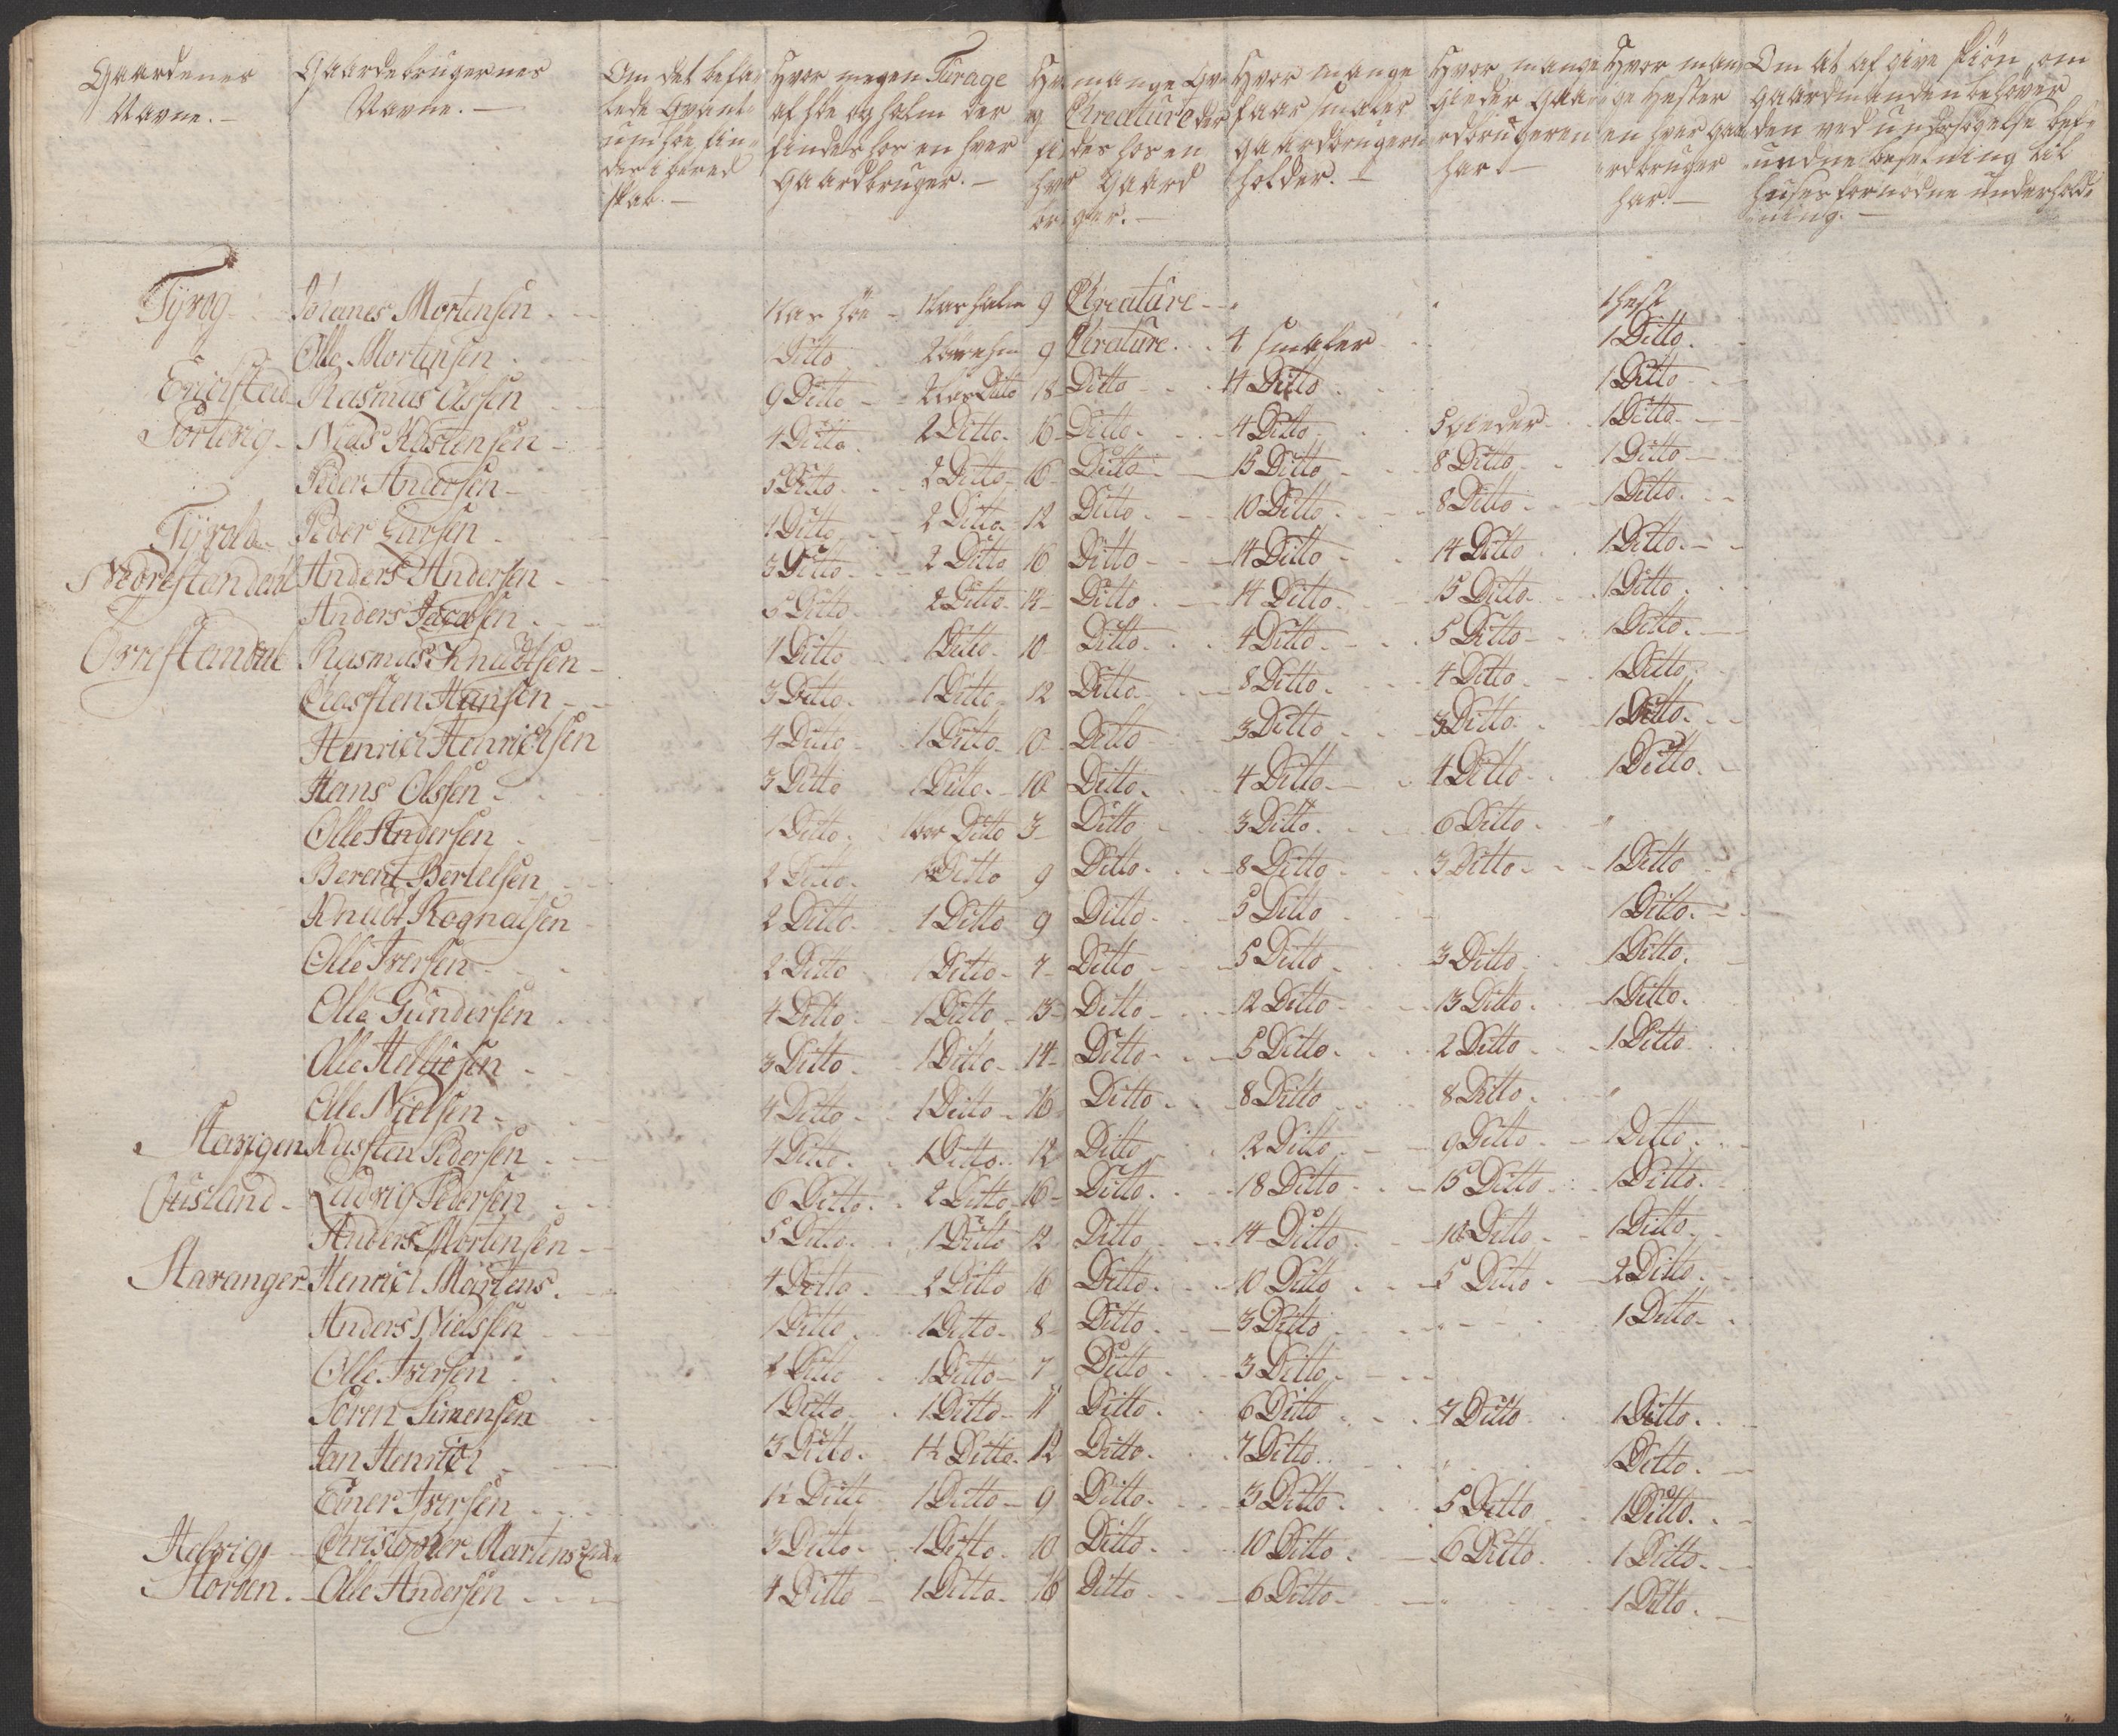 Gaardenes Navne. -
Gaardebrugernes Navne. -
Om det befalede Qvantum höe findes i beredskab. -
Hvor megen Furage af höe og halm der findes hos en hver Gaardbruger. -
Hvor mange Qveg Chreature der findes hos en hvor Gaardbruger. -
Hvor mange faar smaler gaardbrugeren holder. -
Hvor mange gieder Gaardbrugeren har -
Hvor mange Hester en hver gaardbruger har. -
Om at afgive skiön, om gaardmanden behöver den ved undersögelse befundne besetning til Huses fornödne underholdning. -
Tyvog - Johanes Mortensen - 1 las höe - 1 las halm 9 Chreature - 1 hest
Olle Mortensen - 1 Ditto 9 Chrature - 4 smaler 1 Ditto.
Erichstad Rasmus Olssen - 9 Ditto - 2 las Ditto 18 - Ditto - 14 Ditto 1 Ditto -
Torkvig - Nils Karstensen - 4 Ditto 2 Ditto - 16 - Ditto - 4 Ditto 5 gieder - 1 Ditto -
Peder Andersen - 5 Ditto - 2 Ditto - 16 - Ditto - 15 Ditto - 8 Ditto 1 Ditto -
Peder Larsen - 1 Ditto - 2 Ditto - 12 Ditto - 10 Ditto - 8 Ditto - 1 Ditto -
Nedrestandal Anders Andersen - 3 Ditto - 2 Ditto 16 Ditto - 14 Ditto - 14 Ditto 1 Ditto -
Anders Jacobsen - 5 Ditto 2 Ditto - 14 - Ditto - 14 Ditto - 15 Ditto - 1 Ditto
Övrestandal Rasmus Knudtsen - 1 Ditto 1 Ditto - 10 - Ditto - 4 Ditto - 5 Ditto - 1 Ditto -
Chasten Hansen - 3 Ditto - 1 Ditto - 12 Ditto - 8 Ditto - 4 Ditto - 1 Ditto
Henrich Henrichsen 4 Ditto - 1 Ditto - 10 - Ditto 3 Ditto - 3 Ditto - 1 Ditto -
Hans Olssen - 3 Ditto 1 Ditto - 10 Ditto - 4 Ditto - 4 Ditto - 1 Ditto -
Olle Andersen - 1 Ditto - Ditto 3 - Ditto - 3 Ditto - 6 Ditto -
Berent Bertelsen - 2 Ditto - 1 Ditto 9 Ditto - 8 Ditto - 3 Ditto - 1 Ditto
Knudt Rognalsen - 2 Ditto - 1 Ditto - 9 Ditto - 5 Ditto 1 Ditto -
Olle Iversen - 2 Ditto 1 Ditto - 7 - Ditto - 5 Ditto - 3 Ditto 1 Ditto -
Olle Gundersen - 4 Ditto - 1 Ditto - 13 - Ditto - 12 Ditto - 13 Ditto - 1 Ditto.
Olle Hellgesen - 3 Ditto - 1 Ditto - 14 - Ditto - 5 Ditto - 2 Ditto - 1 Ditto
Olle Nielsen - 4 Ditto - 1 Ditto - 16 Ditto - 8 Ditto 8 Ditto -
Kasten Pedersen - 4 Ditto - 1 Ditto - 12 Ditto 12 Ditto - 9 Ditto - 1 Ditto -
Ousland - Ludvig Pedersen - 6 Ditto - 2 Ditto - 16 - Ditto - 18 Ditto - 15 Ditto - 1 Ditto -
Anders Mortensen - 5 Ditto - 1 Ditto 12 Ditto - 14 Ditto - 10 Ditto - 1 Ditto -
Stavanger - Henrich Martens - 4 Ditto - 2 Ditto 16 Ditto - 10 Ditto - 5 Ditto - 2 Ditto -
Anders Nielssen - 1 Ditto - 1 Ditto - 8 - Ditto - 3 Ditto - 1 Ditto -
Olle Iversen 2 Ditto 1 Ditto - 7 Ditto - 3 Ditto -
Soren Simensen 1 Ditto - 1 Ditto - 11 Ditto - 6 Ditto - 7 Ditto 1 Ditto -
Jan Henrich - 3 Ditto - 1½ Ditto - 12 Ditto - 7 Ditto - 1 Ditto -
Einer Iversen - 1½ Ditto 1 Ditto - 9 Ditto - 3 Ditto - 5 Ditto 1 Ditto -
Helvig - Christopher Martens 3 Ditto - 1 Ditto - 10 Ditto - 10 Ditto - 6 Ditto - 1 Ditto -
Olle Andersen - 4 Ditto - 1 Ditto - 16 Ditto - 6 Ditto - 1 Ditto -